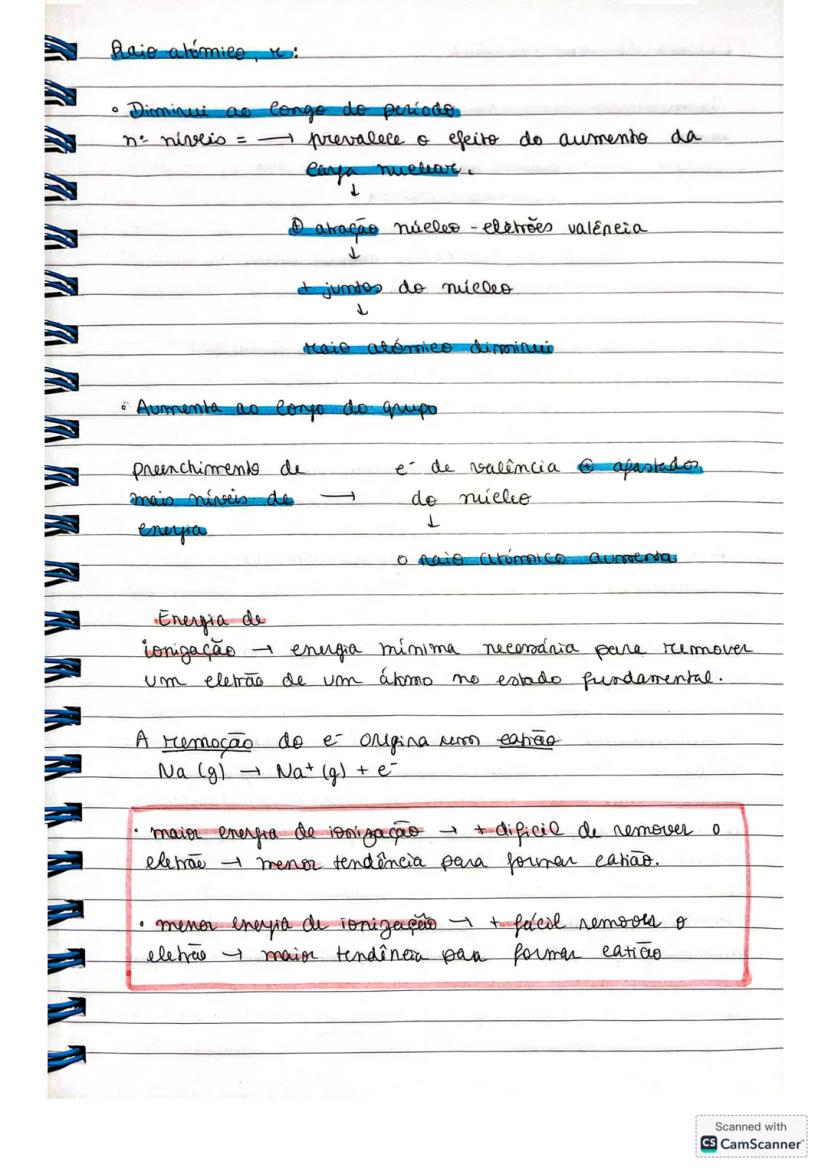 Raio atómico, r:
• Diminui ao longo do período
nº níveis = → prevalece o efeito do aumento da
carga nuclear.
↓
⊕ atração núcleo - eletrões valência
↓
+ juntos do núcleo
↓
raio atómico diminui
• Aumenta ao longo do grupo
preenchimento de e⁻ de valência ⊕ afastados
mais níveis de → do núcleo
energia ↓
o raio atómico aumenta
Energia de
ionização → energia mínima necessária para remover
um eletrão de um átomo no estado fundamental.
A remoção do e⁻ origina um catião
Na (g) → Na⁺ (g) + e⁻
• maior energia de ionização → + difícil de remover o
eletrão → menor tendência para formar catião.
• menor energia de ionização → + fácil remover o
eletrão → maior tendência para formar catião
Scanned with
CS CamScanner